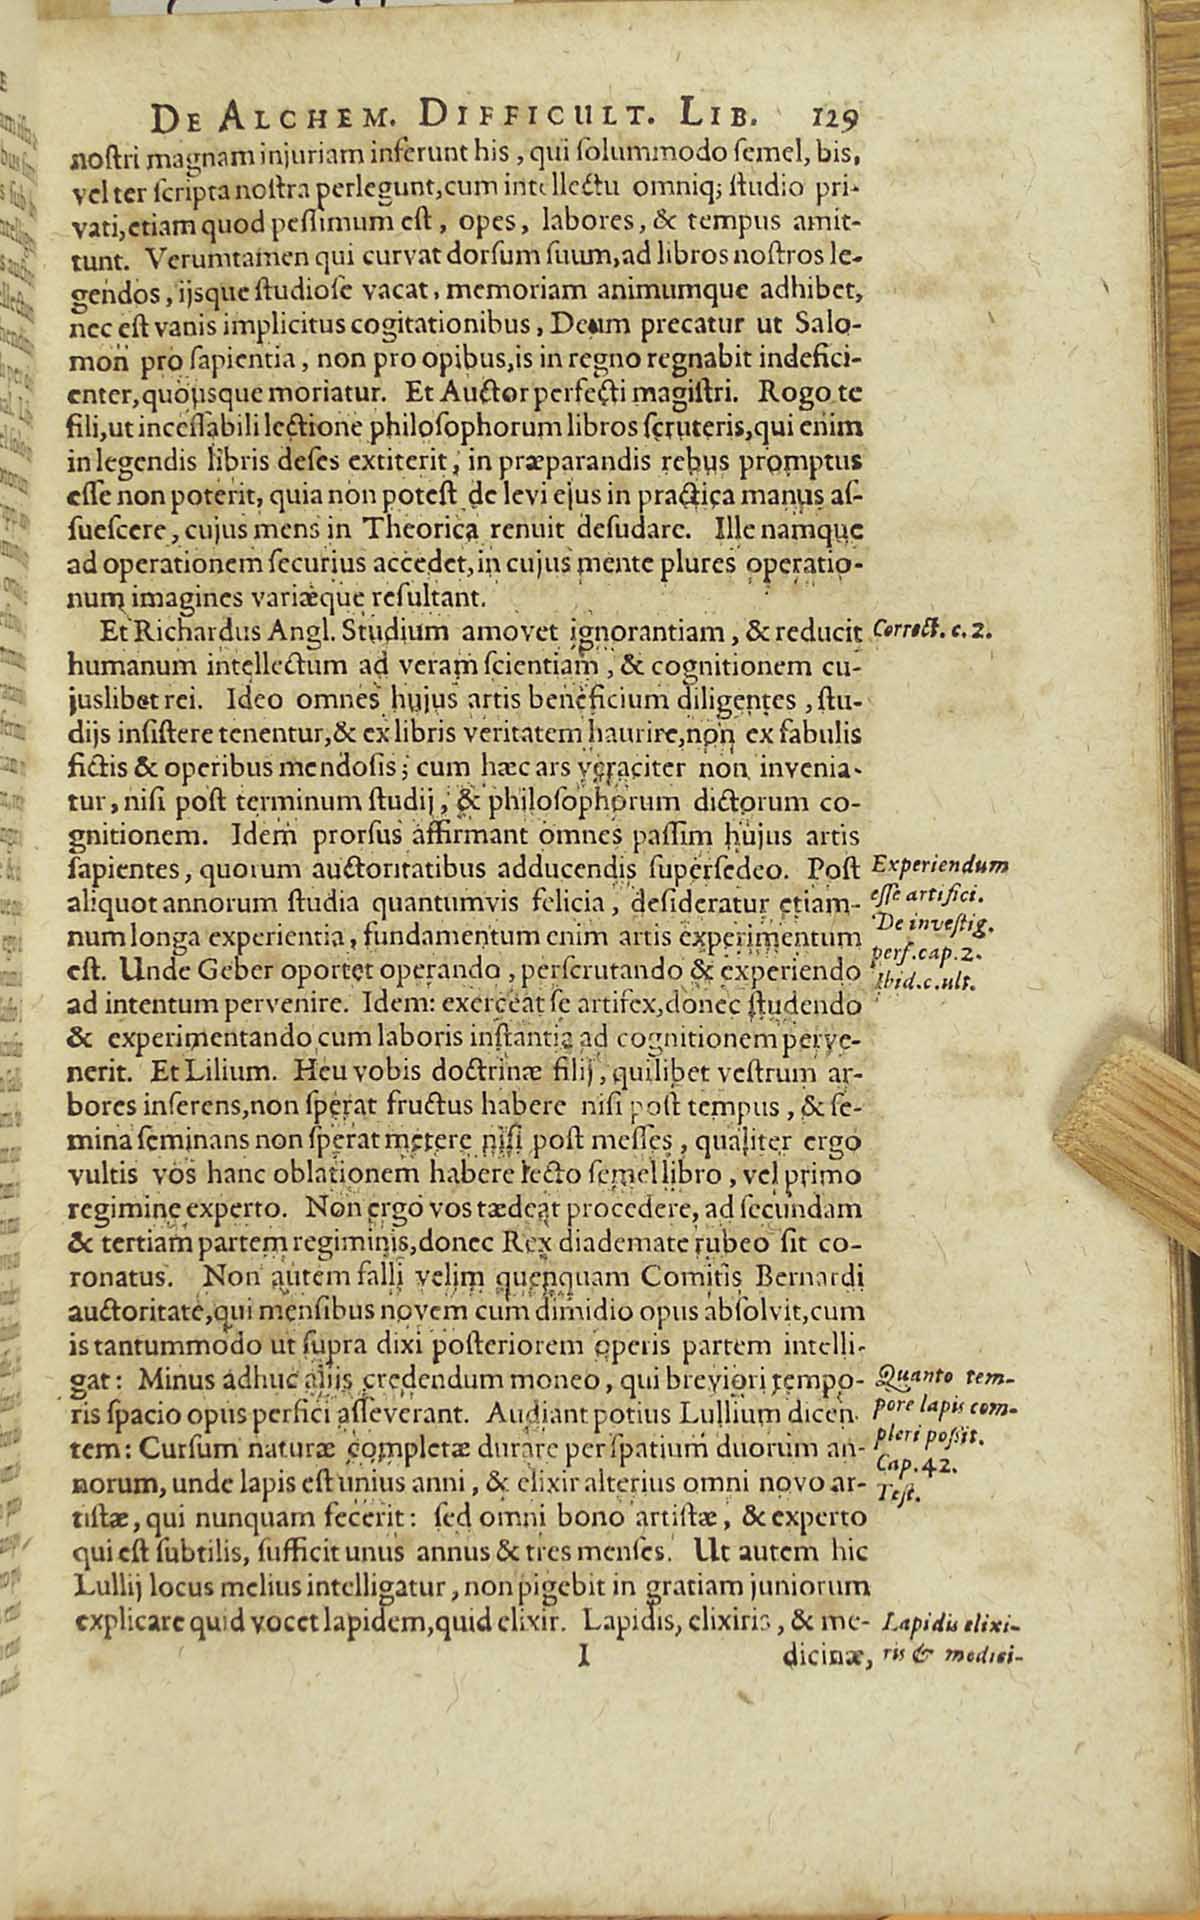 DE ALCHEM. DIFFICULT. LIB. 129
noſtri magnam injuriam inferunt his, qui ſolummodo ſemel, bis,
vel ter ſcripta noſtra perlegunt, cum intellectu omniq; ſtudio pri-
vati, etiam quod peſſimum eſt, opes, labores, & tempus amit-
tunt. Verumtamen qui curvat dorſum ſuum, ad libros noſtros le-
gendos, ijsque ſtudioſe vacat, memoriam animumque adhibet,
nec eſt vanis implicitus cogitationibus, Deum precatur ut Salo-
mon pro ſapientia, non pro opibus, is in regno regnabit indefici-
enter, quousque moriatur. Et Auctor perfecti magiſtri. Rogo te
fili, ut inceſſabili lectione philoſophorum libros ſcruteris, qui enim
in legendis libris deſes extiterit, in præparandis rebus promptus
eſſe non poterit, quia non poteſt de levi ejus in practica manus aſ-
ſueſcere, cujus mens in Theorica renuit deſudare. Ille namque
ad operationem ſecurius accedet, in cujus mente plures operatio-
num imagines variæque reſultant.
Et Richardus Angl. Studium amovet ignorantiam, & reducit Correct. c. 2.
humanum intellectum ad veram ſcientiam, & cognitionem cu-
juslibet rei. Ideo omnes hujus artis beneficium diligentes, ſtu-
dijs inſiſtere tenentur, & ex libris veritatem haurire, non ex fabulis
fictis & operibus mendoſis; cum hæc ars veraciter non invenia-
tur, niſi poſt terminum ſtudij, & philoſophorum dictorum co-
gnitionem. Idem prorſus affirmant omnes paſſim hujus artis
ſapientes, quorum auctoritatibus adducendis ſuperſedeo. Poſt Experiendum
aliquot annorum ſtudia quantumvis felicia, deſideratur etiam- eſſe artifici.
num longa experientia, fundamentum enim artis experimentum De inveſtig.
eſt. Unde Geber oportet operando, perſcrutando & experiendo perf. cap. 2.
ad intentum pervenire. Idem: exerceat ſe artifex, donec ſtudendo Ibid. c. ult.
& experimentando cum laboris inſtantia ad cognitionem perve-
nerit. Et Lilium. Heu vobis doctrinæ filij, quilibet veſtrum ar-
bores inſerens, non ſperat fructus habere niſi poſt tempus, & ſe-
mina ſeminans non ſperat metere niſi poſt meſſes, qualiter ergo
vultis vos hanc oblationem habere lecto ſemel libro, vel primo
regimine experto. Non ergo vos tædeat procedere, ad ſecundam
& tertiam partem regiminis, donec Rex diademate rubeo ſit co-
ronatus. Non autem falli velim quenquam Comitis Bernardi
auctoritate, qui menſibus novem cum dimidio opus abſolvit, cum
is tantummodo ut ſupra dixi poſteriorem operis partem intelli-
gat: Minus adhuc aliis credendum moneo, qui breviori tempo- Quanto tem-
ris ſpacio opus perfici aſſeverant. Audiant potius Lullium dicen- pore lapis com-
tem: Curſum naturæ completæ durare per ſpatium duorum an- pleri poſſit.
norum, unde lapis eſt unius anni, & elixir alterius omni novo ar- Cap. 42.
tiſtæ, qui nunquam fecerit: ſed omni bono artiſtæ, & experto Teſt.
qui eſt ſubtilis, ſufficit unus annus & tres menſes. Ut autem hic
Lullij locus melius intelligatur, non pigebit in gratiam juniorum
explicare quid vocet lapidem, quid elixir. Lapidis, elixiris, & me- Lapidis elixi-
I dicinæ, ris & medici-